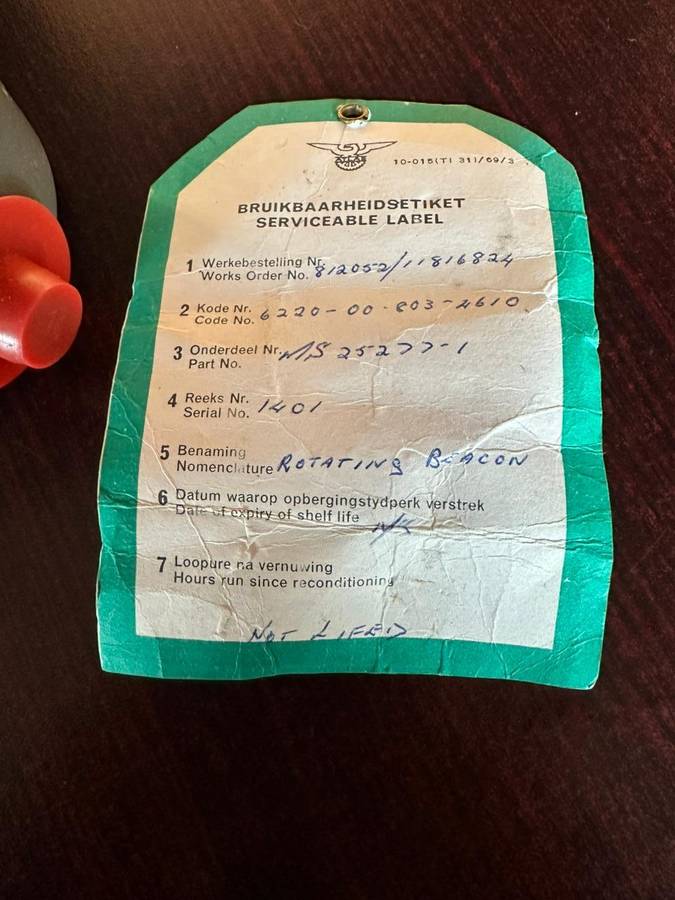 ATLAS
10-015(TI 31)/69/3
BRUIKBAARHEIDSETIKET
SERVICEABLE LABEL
1 Werkebestelling Nr.
Works Order No. 812052/11816824
2 Kode Nr.
Code No. 6220-00-803-4610
3 Onderdeel Nr. MS 25277-1
Part No.
4 Reeks Nr.
Serial No. 1401
5 Benaming
Nomenclature ROTATING BEACON
6 Datum waarop opbergingstydperk verstrek
Date of expiry of shelf life
7 Loopure na vernuwing
Hours run since reconditioning
NOT LIFED